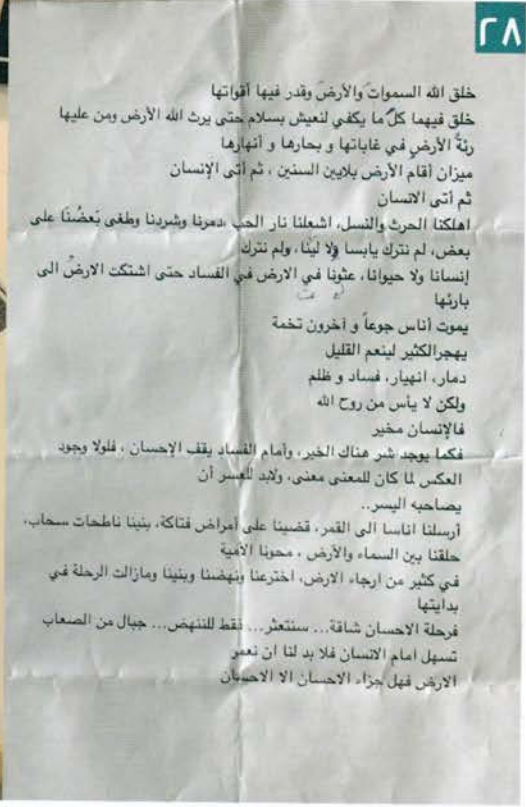 ٢٨
خلق الله السموات والأرض وقدر فيها أقواتها
خلق فيهما كلّ ما يكفي لنعيش بسلام حتى يرث الله الأرض ومن عليها
رئةُ الأرضِ في غاباتها و بحارها و أنهارها
ميزان أقام الأرض بلايين السنين ، ثم أتى الإنسان
ثم أتى الانسان
اهلكنا الحرث والنسل، اشعلنا نار الحب ،دمرنا وشردنا وطغى بَعضُنَا على
بعض، لم نترك يابسا ولا لينا، ولم نترك
إنسانا ولا حيوانا، عثونا في الارض في الفساد حتى اشتكت الارضُ الى
بارئها
يموت أناس جوعاً و آخرون تخمة
يهجرالكثير لينعم القليل
دمار، انهيار، فساد و ظلم
ولكن لا يأس من روح الله
فالإنسان مخير
فكما يوجد شر هناك الخير، وأمام الفساد يقف الإحسان ، فلولا وجود
العكس لما كان للمعنى معنى، ولابد للعسر أن
يصاحبه اليسر..
أرسلنا اناسا الى القمر، قضينا على أمراض فتاكة، بنينا ناطحات سحاب،
حلقنا بين السماء والأرض ، محونا الأمية
في كثير من ارجاء الارض، اخترعنا ونهضنا وبنينا ومازالت الرحلة في
بدايتها
فرحلة الاحسان شاقة... سنتعثر... فقط للننهض... جبال من الصعاب
تسهل امام الانسان فلا بد لنا ان نعمر
الارض فهل جزاء الاحسان الا الاحسان